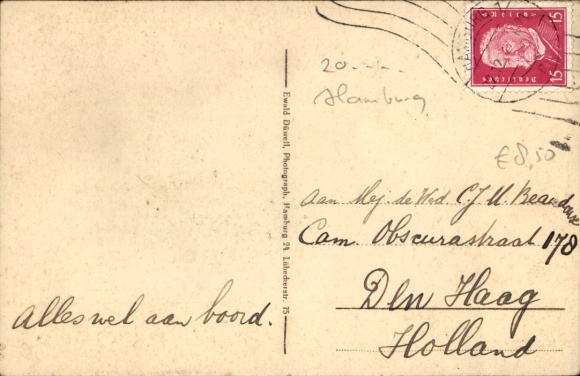 15 15
Deutsches Reich
HAMBURG
20 - - -
Hamburg
€8,50
Ewald Düwell, Photograph, Hamburg 24, Lübeckerstr. 75
aan Mej. de Wed. C.J.U.
Cam. Obscurastraat 178
Den Haag
Holland
Alles wel aan boord.